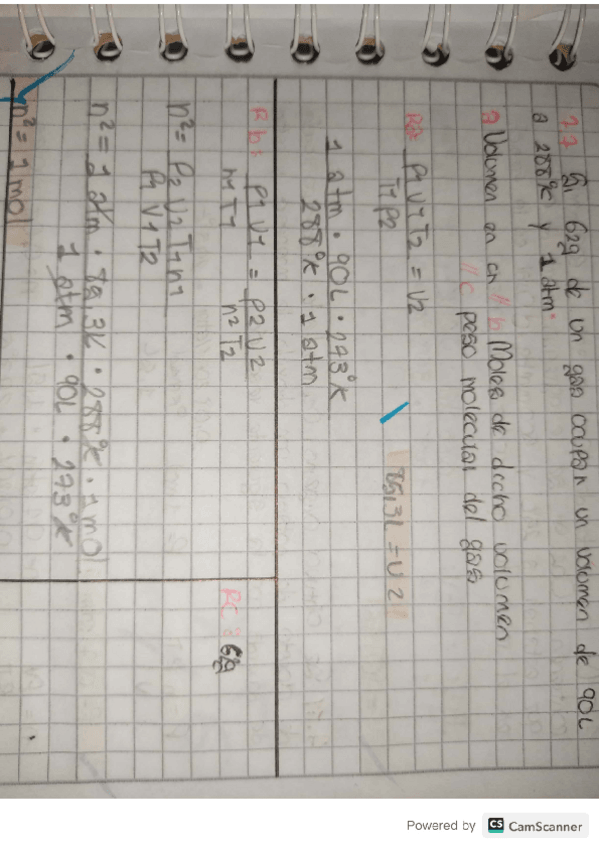 77 Si 62g de un gas ocupan un volumen de 90L
a 288°K y 1 atm.
a Volumen en cn // b Moles de dicho volumen
// c peso molecular del gas
Ra: P1V1T2 = V2
T1P2
1 atm . 90L . 273°K
288°K . 1 atm
85,3L = V2//
Rb: P1V1 = P2V2
n1T1 n2T2
n2= P2V2T1n1
P1V1T2
n2= 1 atm . 85,3L . 288°K . 1mol
1 atm . 90L . 273°K
n2= 1 mol
Rc: 62g
Powered by CS CamScanner